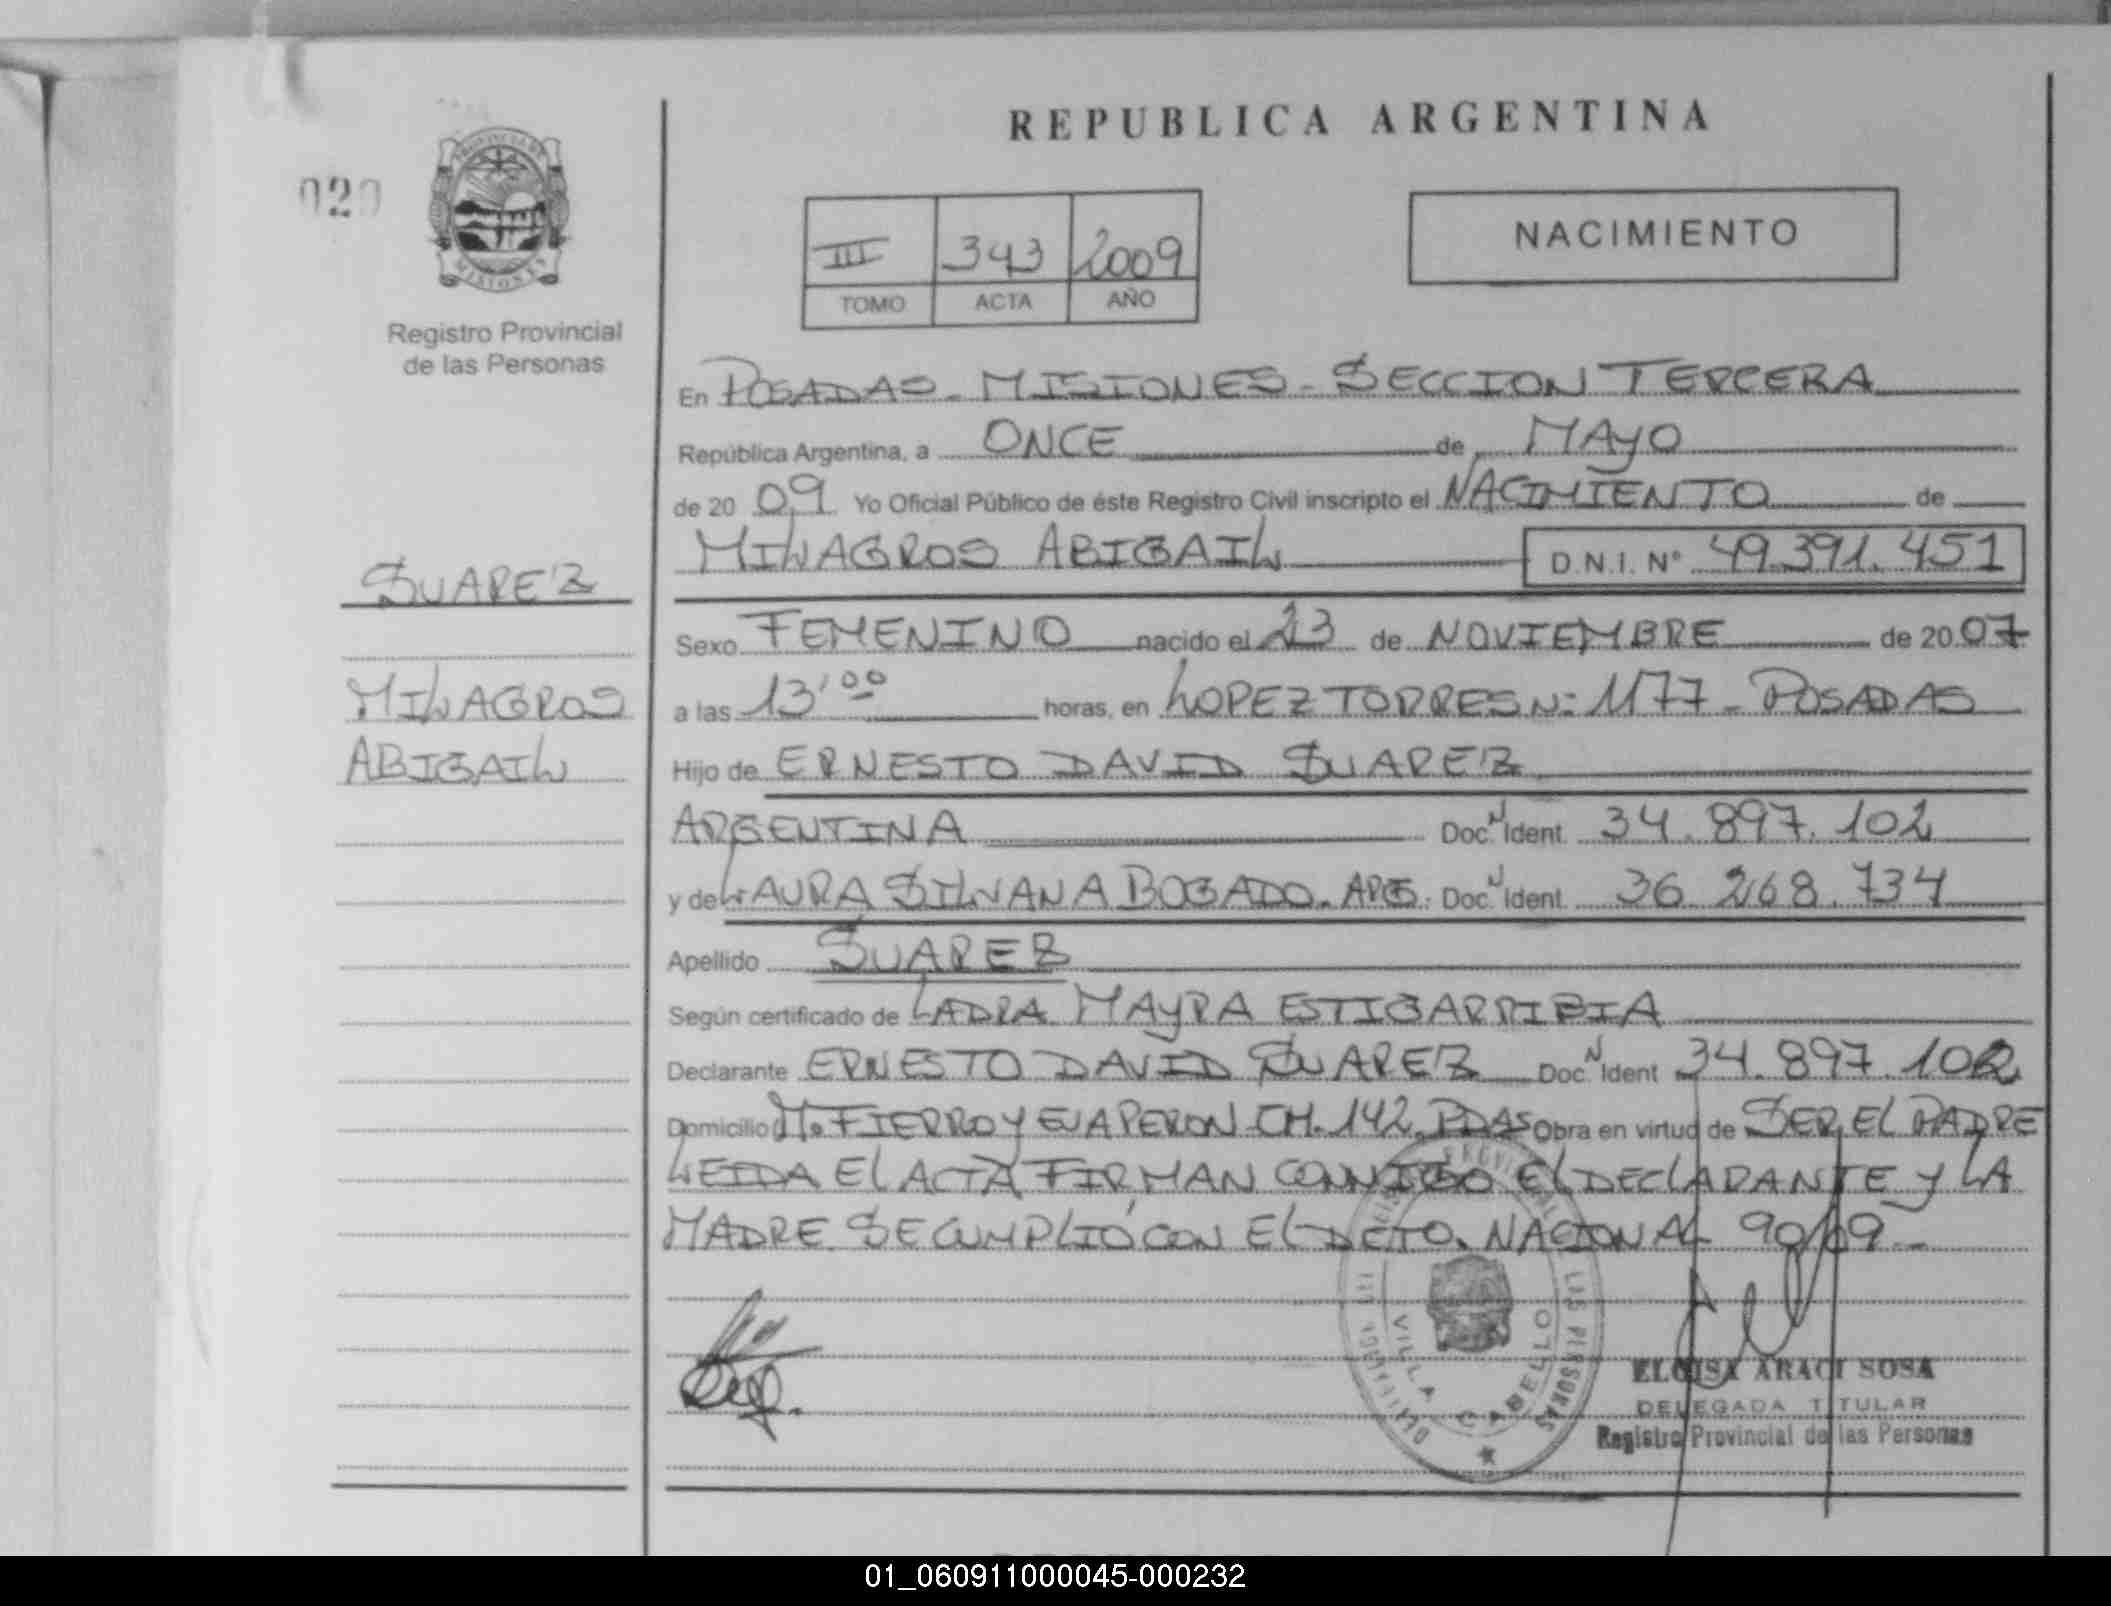 REPUBLICA ARGENTINA
020
PROVINCIA DE
MISIONES
Registro Provincial
de las Personas
III 343 2009
TOMO ACTA AÑO
NACIMIENTO
En POSADAS - MISIONES - SECCION TERCERA
República Argentina, a ONCE de MAYO
de 20 09 Yo Oficial Público de éste Registro Civil inscripto el NACIMIENTO de
MILAGROS ABIGAIL D.N.I. Nº 49.391.451
SUAREZ
MILAGROS
ABIGAIL
Sexo FEMENINO nacido el 23 de NOVIEMBRE de 20 07
a las 13'00 horas, en LOPEZ TORRES N: 1177 - POSADAS
Hijo de ERNESTO DAVID SUAREZ
ARGENTINA Doc. N Ident 34.897.102
y de LAURA SILVANA BOGADO. ARG. Doc. N Ident 36.268.734
Apellido SUAREZ
Según certificado de LADRA MAYRA ESTIGARRIBIA
Declarante ERNESTO DAVID SUAREZ Doc. N Ident 34.897.102
Domicilio M. FIERRO Y EVA PERON CH. 142. PDAS Obra en virtud de SER EL PADRE
LEIDA El ACTA FIRMAN CONMIGO El DEClARANTE Y LA
MADRE SE CUMPLIÓ CON EL DCTO. NACIONAL 90/09 -
VILLA CABELLO
LAS PERSONAS
ELOISA ARACI SOSA
DELEGADA TITULAR
Registro Provincial de las Personas
01_060911000045-000232